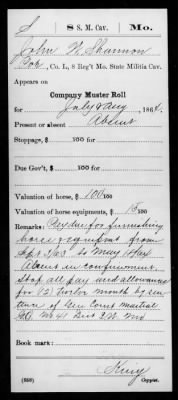 S 8 S. M. Cav. Mo.
John N. Shannon
Cor, Co. L, 8 Reg't Mo. State Militia Cav.
Appears on
Company Muster Roll
for July & Aug, 1864.
Present or absent Absent
Stoppage, $ 100 for
Due Gov't, $ 100 for
Valuation of horse, $ 100 100
Valuation of horse equipments, $ 15 100
Remarks: Pay due for furnishing
horse & equipmt from
to May
Absent in confinement.
Stop all pay and allowances
for (12) twelve months by sen-
tence of Gen Court martial
GO No 41 Mo
Book mark:
King
(359) Copyist.